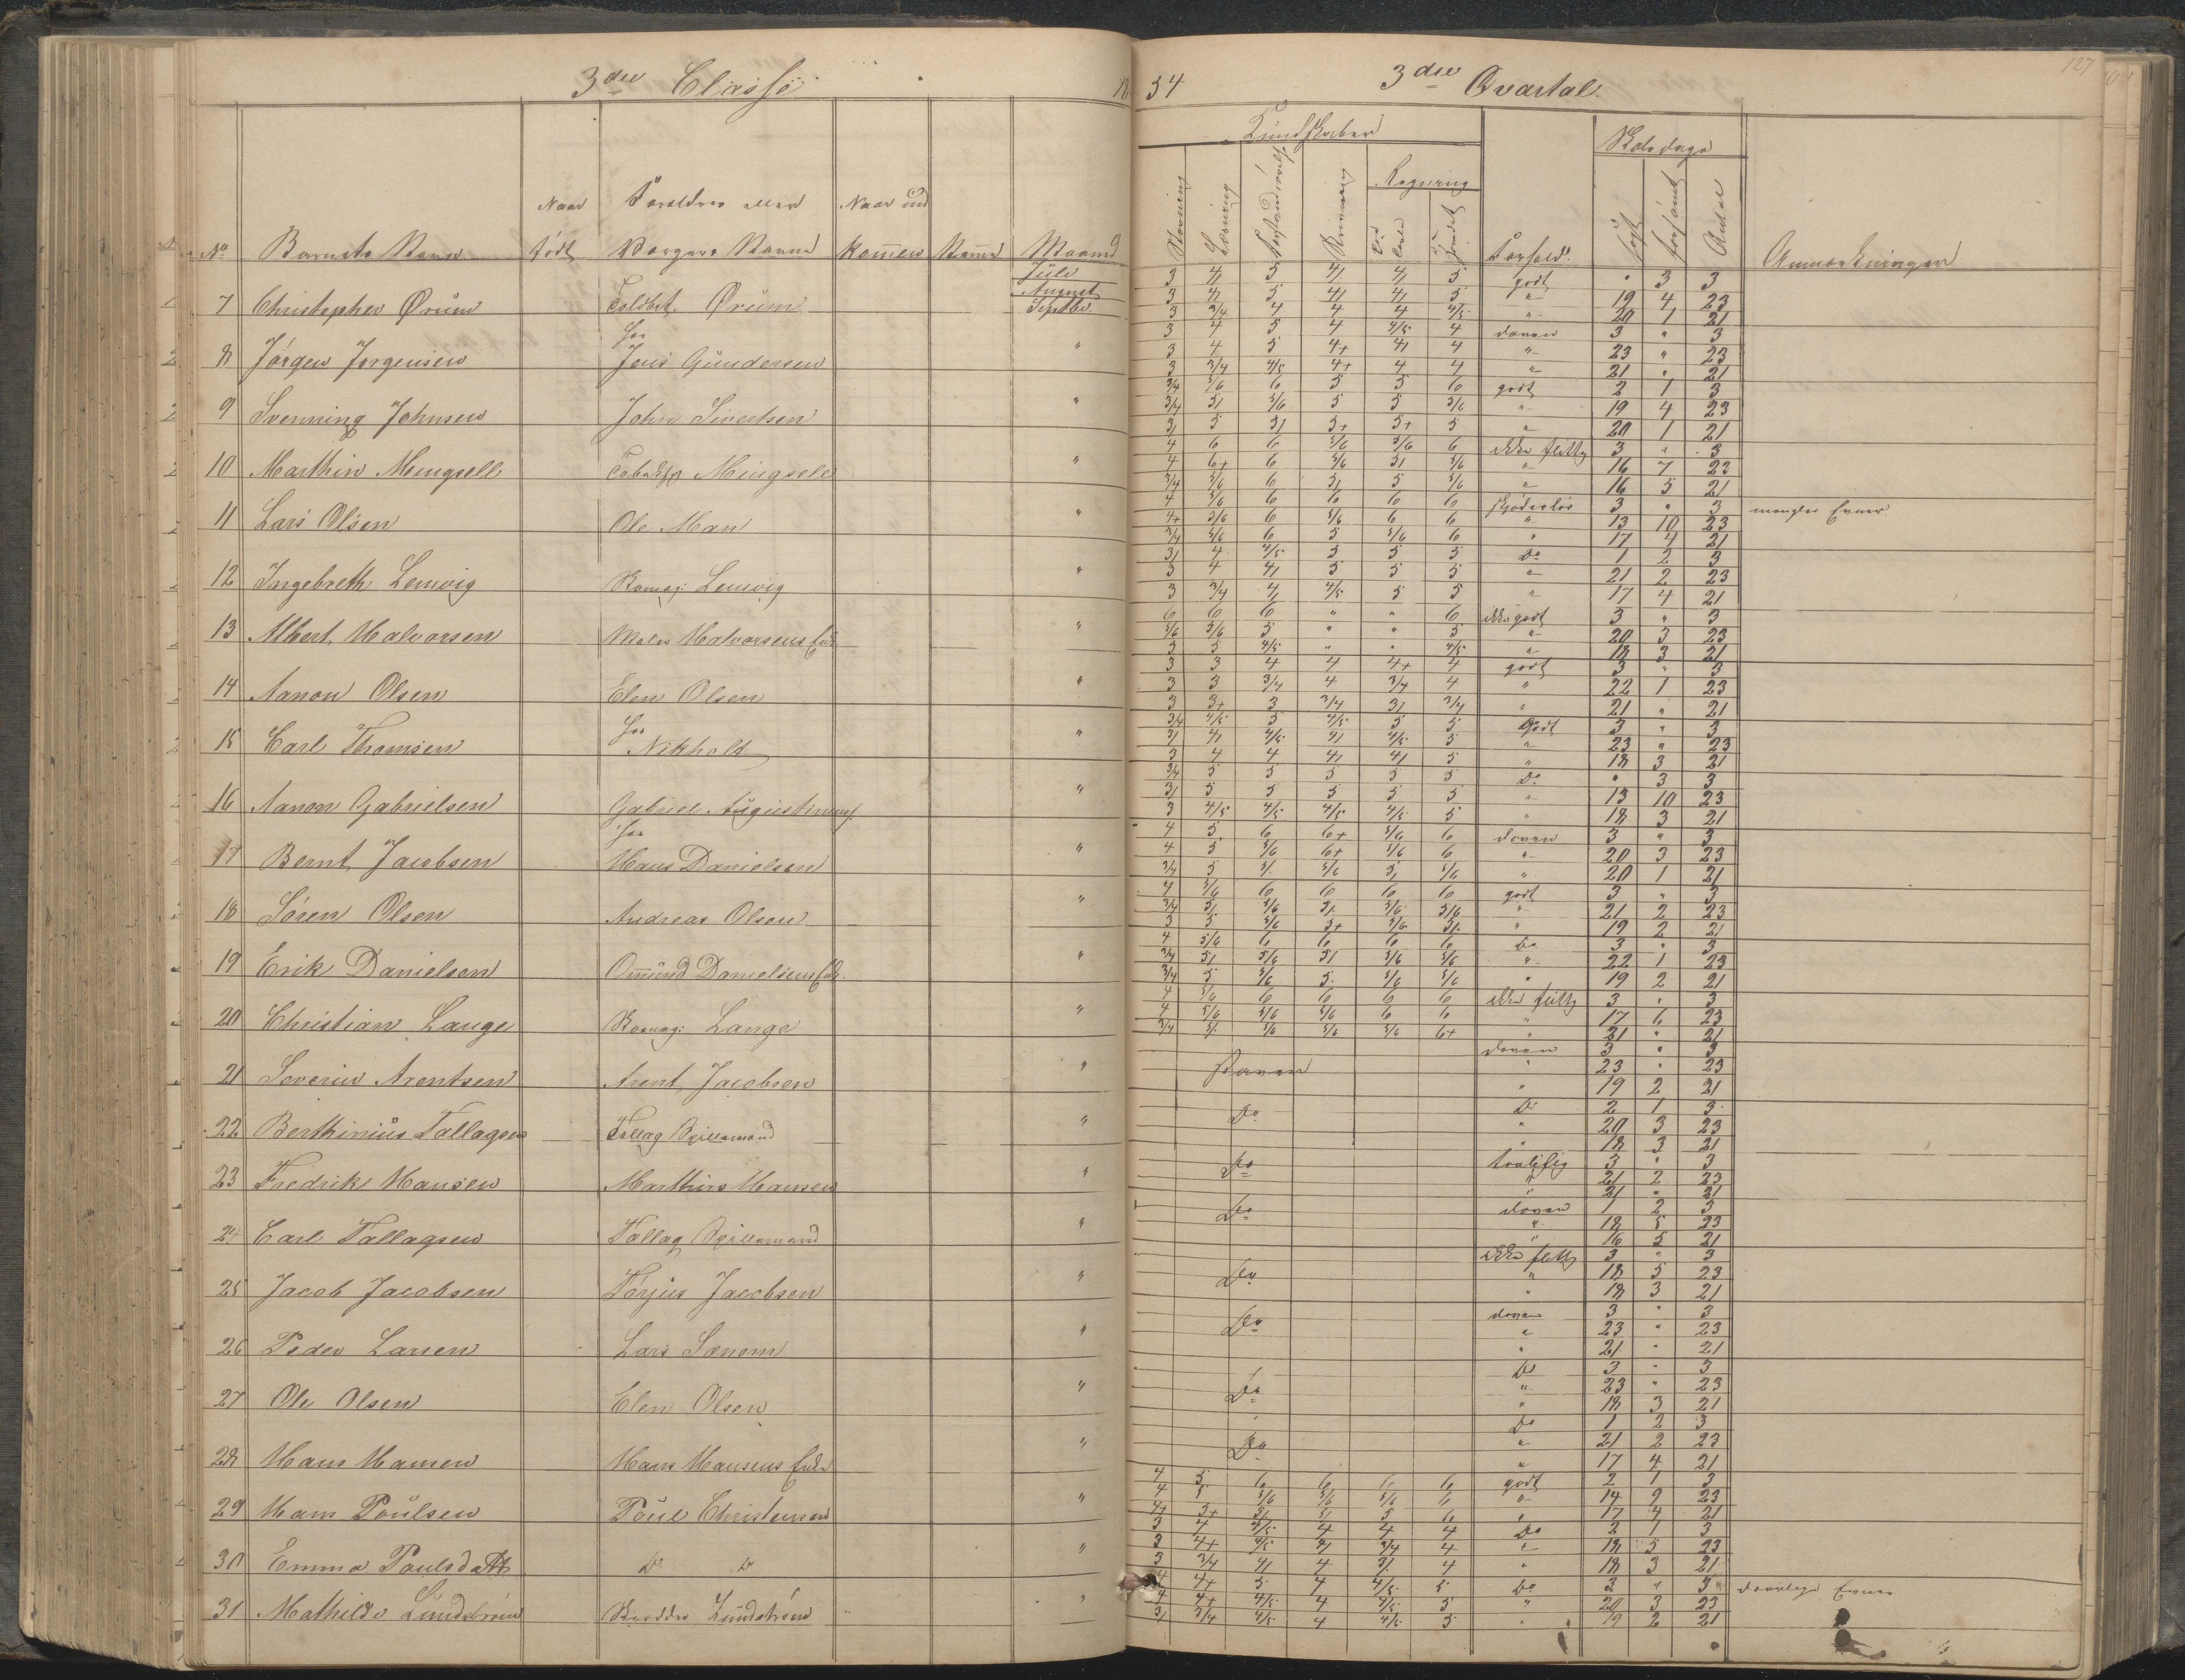 3die Classe 18
No Barnets Navn Naar født Forældres eller Værgers Navne Naar ind kommen Maaned
Juli
August
7 Christopher Ørum Toldbet. Ørum Septbr.
hos
8 Jørgen Jørgensen Jens Gundersen "
9 Svenning Johnsen John Sivertsen "
10 Marthin Mingsell Mingsele "
11 Lars Olsen Ole Man "
12 Ingebreth Lemvig Lemvig "
13 Albert Halvorsen Halvorsens Enke "
14 Aanon Olsen Elen Olsen "
hos
15 Carl Thomsen Nikholt "
16 Aanon Gabrielsen Gabriel "
hos
17 Bernt Jacobsen Hans Danielsen "
18 Søren Olsen Andreas Olsen "
19 Erik Danielsen Omund Danielsens Enke "
20 Christian Lange Lange "
21 Severin Arentsen Arent Jacobsen "
22 Berthinius Tallagsen Tallag Spillemand "
23 Fredrik Hansen Marthins Hansen "
24 Carl Tallagsen Tallag Spillemand "
25 Jacob Jacobsen Tarjus Jacobsen "
26 Peder Larsen Lars "
27 Ole Olsen Elen Olsen "
28 Hans Hansen Hans Hansens Enke "
29 Hans Poulsen Poul Christensen "
30 Emma Poulsdatt Do Do "
31 Mathilde Lundstrøm Lundstrøm "
127
54 3die Qvartal
Kundskaber Skoledage
Regning
Stavning Læsning Skrivning Forhold søgt forsømt Antal Anmærkninger
3 4/ 5 4/ 4/ 5 godt " 3 3
3 4/ 5 4/ 4/ 5 " 19 4 23
3 3/4 4 4 4 4/5 " 20 1 21
3 4 5 4 4/5 4 doven 3 " 3
3 4 5 4+ 4/ 4 " 23 " 23
3 3/4 4/5 4+ 4 4 " 21 " 21
3/4 5/6 6 5 5 6 godt 2 1 3
3/4 5/ 5/6 5 5 5/6 " 19 4 23
3/ 5 5/ 5+ 5+ 5 " 20 1 21
4 6 6 5/6 5/6 6 ikke flittig 3 " 3
4 6+ 6 5/6 5/ 5/6 " 16 7 23
3/4 5/6 6 5/ 5 5/6 " 16 5 21
4 5/6 6 6 6 6 skjødesløs 3 " 3 mangler Evner
4+ 5/6 6 5/6 6 6 " 13 10 23
3/4 5/6 6 5 5/6 6 " 17 4 21
3/ 4 4/5 5 5 5 Do 1 2 3
3 4 4/ 5 5 5 " 21 2 23
3 3/4 4/ 4/5 5 5 " 17 4 21
6 6 6 " " 6 ikke godt 3 " 3
5/6 5/6 5 " " 5 " 20 3 23
5 5 4/5 " " 4/5 " 18 3 21
3 3 4 4 4+ 4 godt 3 " 3
3 3 3/4 4 3/4 4 " 22 1 23
3 3+ 3 3/4 3/ 3/4 " 21 " 21
3/4 4/5 5 4/5 5 5 Godt 3 " 3
3/ 4/ 4/5 4/ 4/5 5 " 23 " 23
3 4 4 4/ 4/ 5 " 18 3 21
3/4 5 5 5 5 5 Do " 3 3
3/ 5 5 5 5 5 " 13 10 23
3 4/5 4/5 4/5 4/5 5 " 18 3 21
4 5 6 6+ 5/6 6 doven 3 " 3
4 5 5/6 6+ 5/6 6 " 20 3 23
3/4 5 5/ 5/6 5/ 5/6 " 20 1 21
4 5/6 6 6 6 6 godt 3 " 3
3/4 5/ 5/6 5/ 5/6 5/6 " 21 2 23
3 5 5/6 5+ 5/6 5/ " 19 2 21
4 5/6 6 6 6 6 Do 3 " 3
3/4 5/ 5/6 5/ 5/6 5/6 " 22 1 23
3/4 5 5/6 5 5/6 5/6 " 19 2 21
4 5/6 6 6 6 6 ikke flittig 3 " 3
4 5/6 5/6 5/6 6 6 " 17 6 23
3/4 5/ 5/6 5/6 5/6 6+ " 21 " 21
doven 3 " 3
Staver " 23 " 23
" 19 2 21
Do Do 2 1 3
" 20 3 23
" 18 3 21
Do 3 " 3
" 21 2 23
" 21 " 21
Do doven 1 2 3
" 18 5 23
" 16 5 21
ikke flittig 3 " 3
Do " 18 5 23
" 18 3 21
doven 3 " 3
Do " 23 " 23
" 21 " 21
Do 3 " 3
Do " 23 " 23
" 18 3 21
Do 1 2 3
Do " 21 2 23
" 17 4 21
4 5 6 6 6 6 godt 2 1 3
4 5 5/6 5/6 5/6 6 " 14 9 23
4+ 5+ 5/ 5/ 5 6 " 17 4 21
3 4 4/5 4 4 4 Do 2 1 3
3 4+ 4/5 4/ 3/4 4 " 18 5 23
3 3/4 4/ 4 3/ 4 " 18 3 21
4 4+ 5 4 4/5 5 Do 3 " 3 daarlige Evner
4 4+ 4/5 4 4/5 5 " 20 3 23
3/ 3/4 4/5 4 4/5 5 " 19 2 21